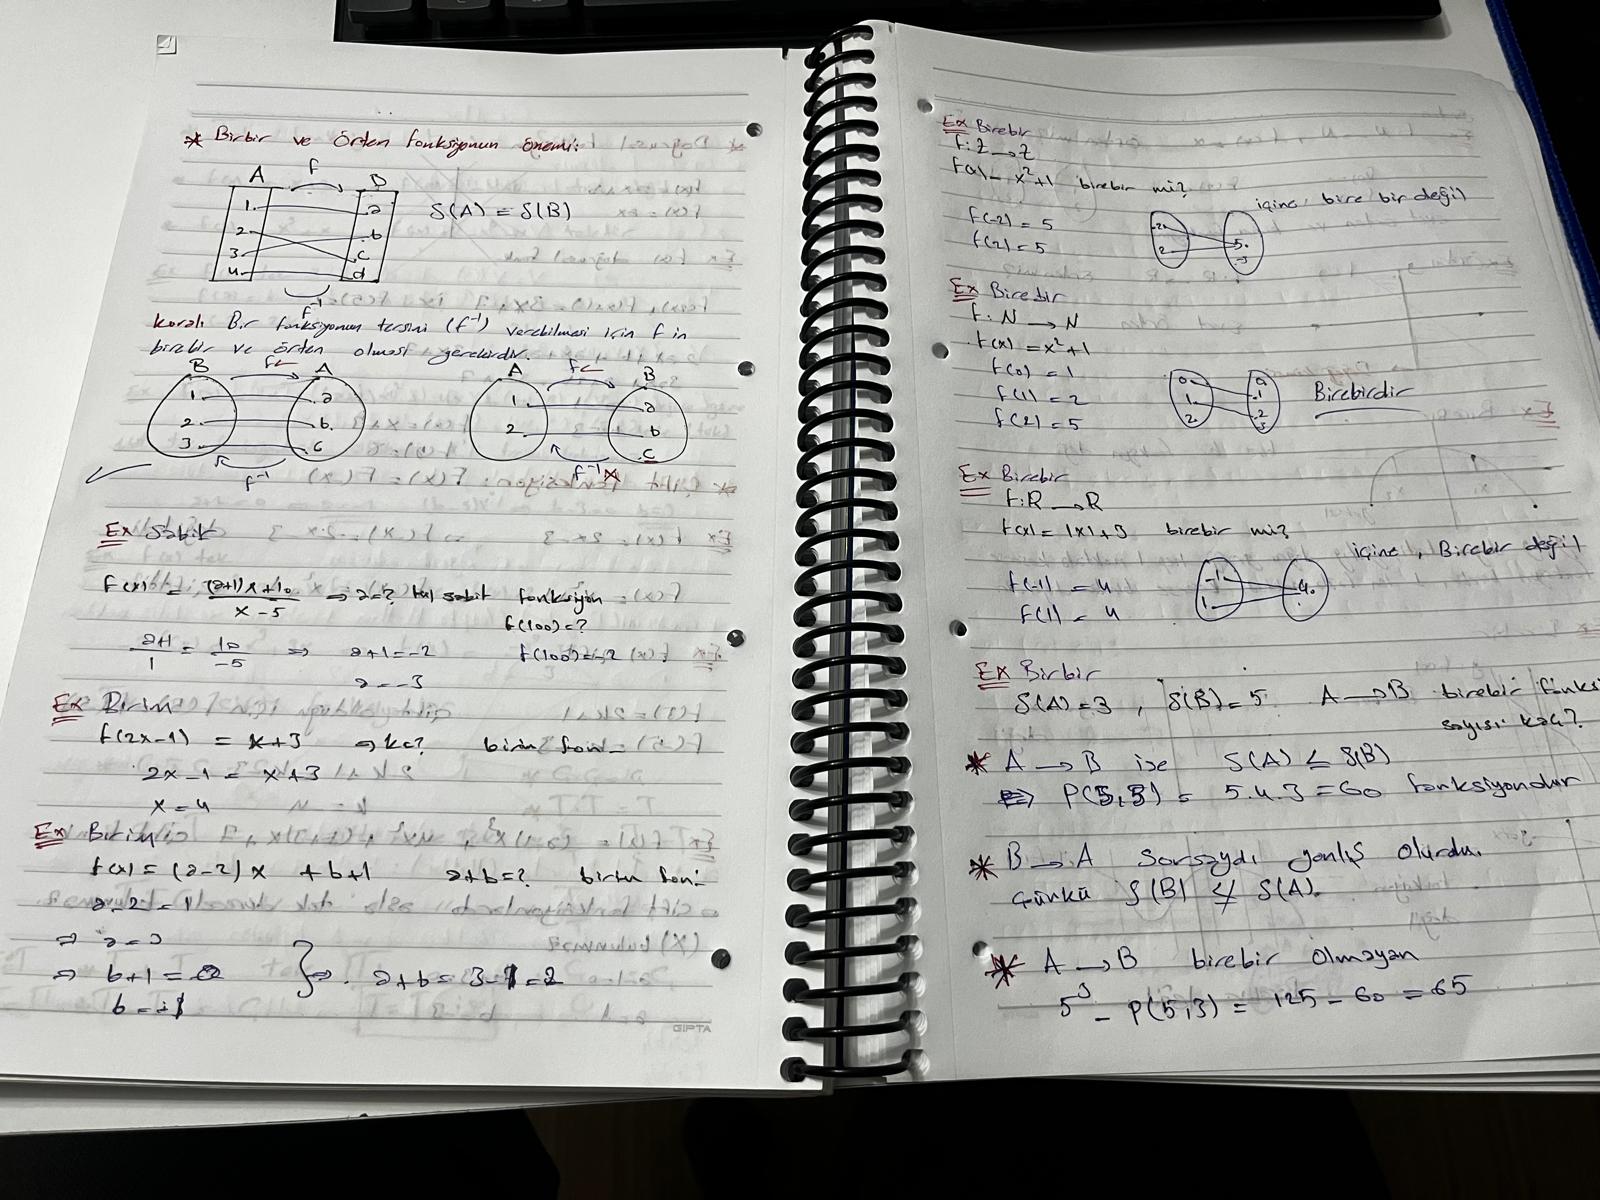 * Birbir ve Örten fonksiyonun önemi:
A f B
1. .a
2. .b
3. .c
4. .d
S(A) = S(B)
f⁻¹
kural: Bir fonksiyonun tersini (f⁻¹) verebilmesi için f in
birebir ve örten olması gerekirdir.
B f A
1. .a
2. .b
3. .c
f⁻¹
A f B
1 a
2 b
.c
f⁻¹
Ex Sabit
f(x) = (a+1)x+10 / x-5 ⇒ a=? f(x) sabit fonksiyon
f(100)=?
a+1/1 = 10/-5 ⇒ a+1=-2 f(100)=-2
a=-3
Ex Birim
f(2x-1) = x+3 ⇒ x=? birim fon-
2x-1 = x+3
x=4
Ex Birim
f(x) = (a-2)x + b+1 a+b=? birim fon-
a-2=1
⇒ a=3
⇒ b+1=0 } ⇒ a+b=3-1=2
b=-1
GIPTA
Ex Birebir
f: Z → Z
f(x) = x²+1 birebir mi?
içine, bire bir değil
f(-2) = 5
f(2) = 5
-2
2 5.
.3
Ex Birebir
f: N → N
f(x) = x²+1
f(0) = 1
f(1) = 2
f(2) = 5
0 0
1 .1
2 .2
Birebirdir
Ex Birebir
f: R → R
f(x) = |x|+3 birebir mi?
içine, Birebir değil
f(-1) = 4
f(1) = 4
-1
1 4.
Ex Birbir
S(A)=3, S(B)=5 A → B birebir fonks
sayısı kaç?
* A → B ise S(A) ≤ S(B)
⇒ P(5,3) = 5.4.3 = 60 fonksiyondur
* B → A sorsaydı yanlış olurdu.
Çünkü S(B) ≰ S(A).
* A → B birebir olmayan
5³ - P(5,3) = 125 - 60 = 65